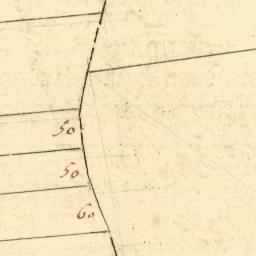 50
50
60